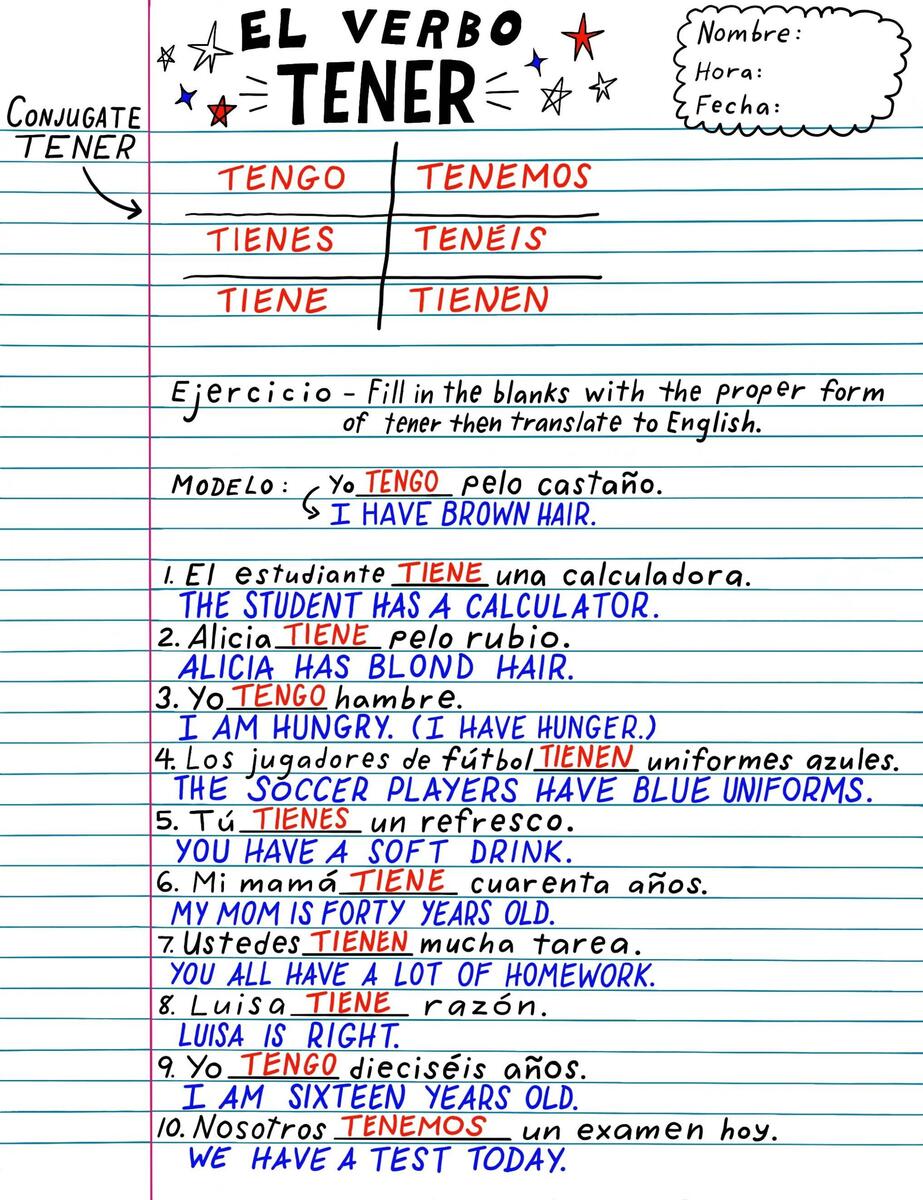 EL VERBO
TENER
Nombre:
Hora:
Fecha:
CONJUGATE
TENER
TENGO TENEMOS
TIENES TENÉIS
TIENE TIENEN
Ejercicio - Fill in the blanks with the proper form
of tener then translate to English.
MODELO: Yo TENGO pelo castaño.
I HAVE BROWN HAIR.
1. El estudiante TIENE una calculadora.
THE STUDENT HAS A CALCULATOR.
2. Alicia TIENE pelo rubio.
ALICIA HAS BLOND HAIR.
3. Yo TENGO hambre.
I AM HUNGRY. (I HAVE HUNGER.)
4. Los jugadores de fútbol TIENEN uniformes azules.
THE SOCCER PLAYERS HAVE BLUE UNIFORMS.
5. Tú TIENES un refresco.
YOU HAVE A SOFT DRINK.
6. Mi mamá TIENE cuarenta años.
MY MOM IS FORTY YEARS OLD.
7. Ustedes TIENEN mucha tarea.
YOU ALL HAVE A LOT OF HOMEWORK.
8. Luisa TIENE razón.
LUISA IS RIGHT.
9. Yo TENGO dieciséis años.
I AM SIXTEEN YEARS OLD.
10. Nosotros TENEMOS un examen hoy.
WE HAVE A TEST TODAY.